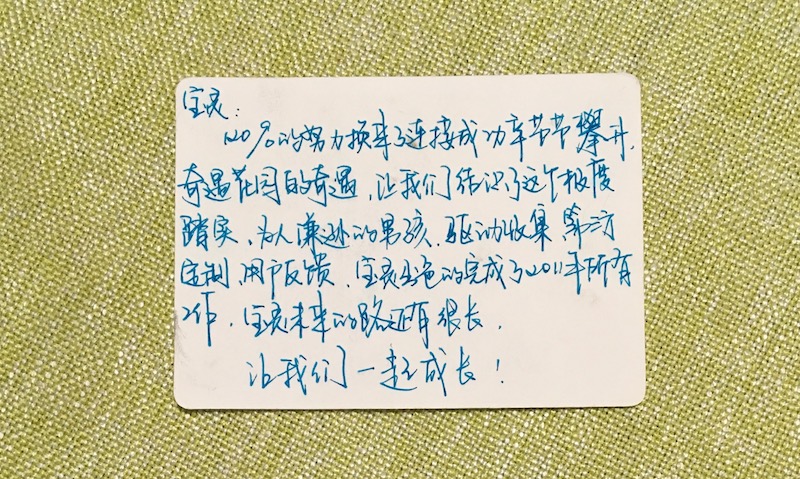 宝灵:
120%的努力换来了连接成功率节节攀升,
奇遇花园的奇遇,让我们结识了这个极度
踏实、为人谦逊的男孩.驱动收集、第三方
定制、用户反馈、宝灵出色的完成了2011年所有
工作.宝灵未来的路还有很长.
让我们一起成长!